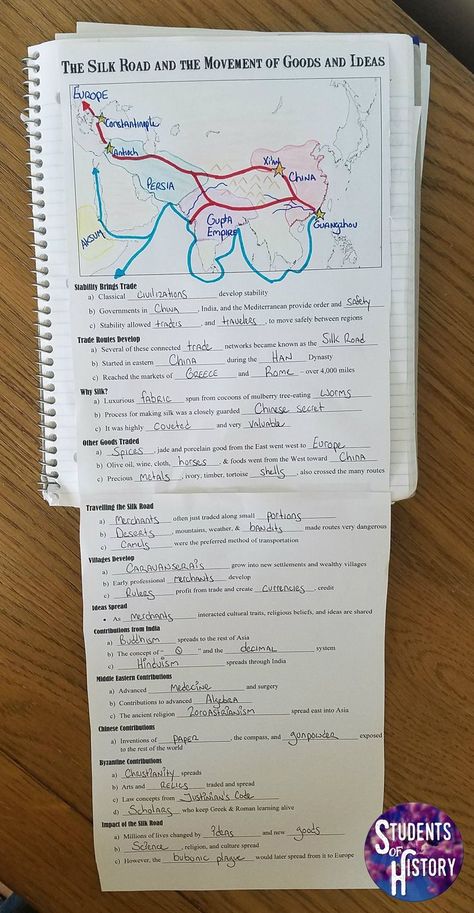 THE SILK ROAD AND THE MOVEMENT OF GOODS AND IDEAS
EUROPE
Constantinople
Antioch
Xi'an
CHINA
PERSIA
Gupta
Empire
GUANGZHOU
AKSUM
Stability Brings Trade
a) Classical civilizations develop stability
b) Governments in China, India, and the Mediterranean provide order and safety
c) Stability allowed traders, and travelers, to move safely between regions
Trade Routes Develop
a) Several of these connected trade networks became known as the Silk Road
b) Started in eastern China during the HAN Dynasty
c) Reached the markets of GREECE and Rome – over 4,000 miles
Why Silk?
a) Luxurious fabric spun from cocoons of mulberry tree-eating worms
b) Process for making silk was a closely guarded Chinese secret
c) It was highly coveted and very valuable
Other Goods Traded
a) Spices, jade and porcelain good from the East went west to Europe
b) Olive oil, wine, cloth, horses & foods went from the West toward China
c) Precious metals, ivory, timber, tortoise shells, also crossed the many routes
Travelling the Silk Road
a) Merchants often just traded along small portions
b) Deserts, mountains, weather, & bandits made routes very dangerous
c) Camels were the preferred method of transportation
Villages Develop
a) CARAVANSERAIS grow into new settlements and wealthy villages
b) Early professional merchants develop
c) Rulers profit from trade and create currencies, credit
Ideas Spread
• As merchants interacted cultural traits, religious beliefs, and ideas are shared
Contributions from India
a) Buddhism spreads to the rest of Asia
b) The concept of " 0 " and the decimal system
c) Hinduism spreads through India
Middle Eastern Contributions
a) Advanced medecine and surgery
b) Contributions to advanced Algebra
c) The ancient religion ZOROASTRIANISM spread east into Asia
Chinese Contributions
a) Inventions of paper, the compass, and gunpowder exposed
to the rest of the world
Byzantine Contributions
a) Christianity spreads
b) Arts and RELICS traded and spread
c) Law concepts from Justinian's Code
d) Scholars who keep Greek & Roman learning alive
Impact of the Silk Road
a) Millions of lives changed by ideas and new goods
b) Science, religion, and culture spread
c) However, the bubonic plague would later spread from it to Europe
STUDENTS
OF
HISTORY